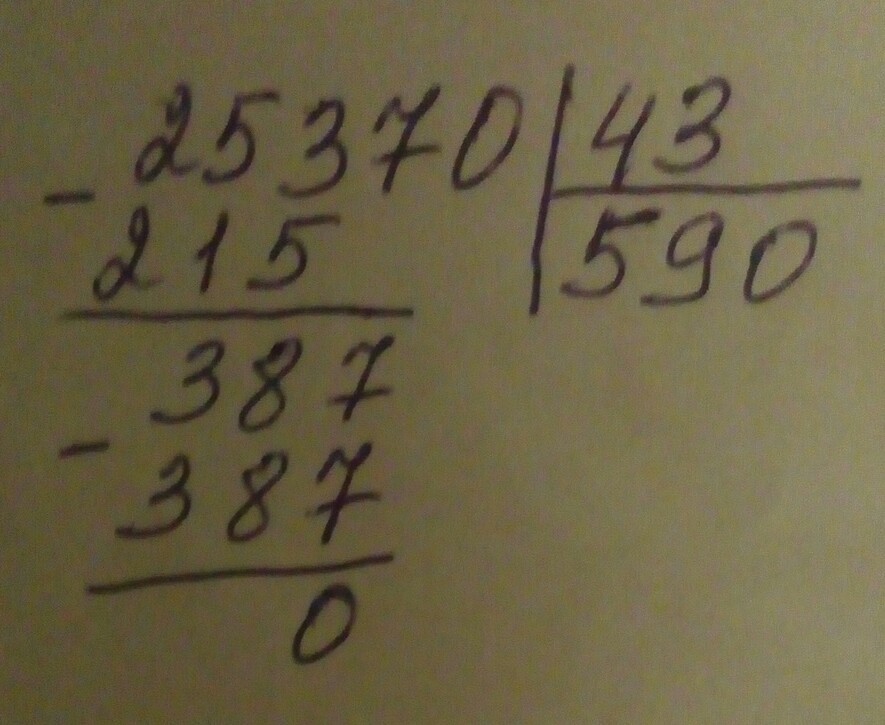 25370 43
- 215 590
387
- 387
0